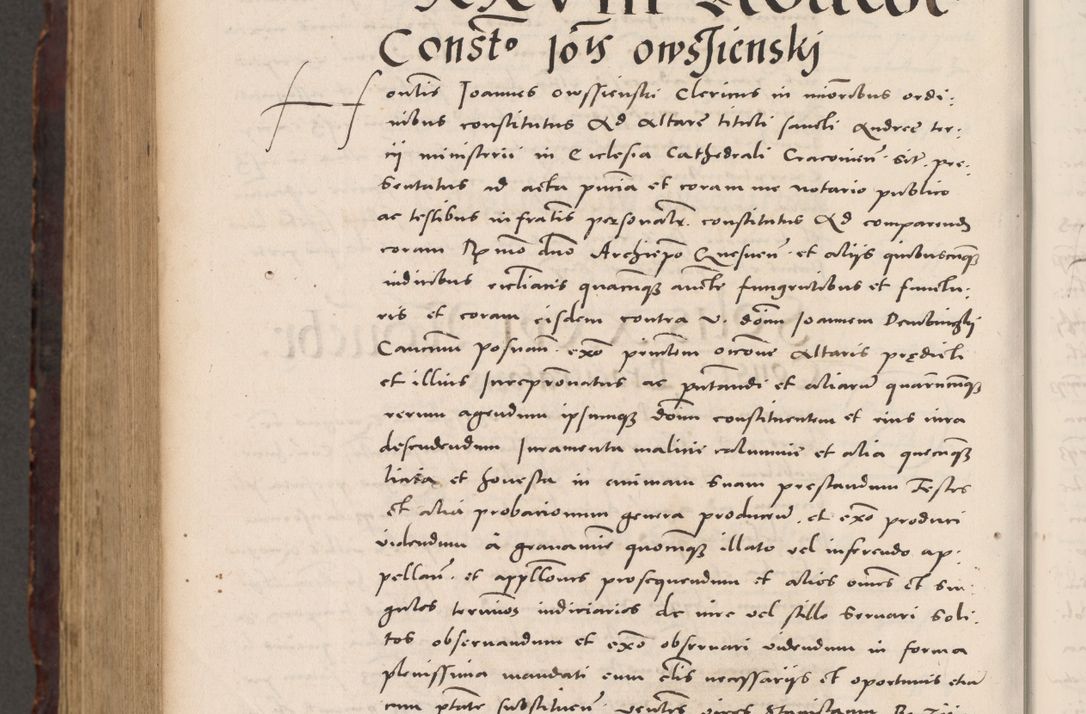 Constō joīs owsſienski
Honestis Joannes owssienski Clericus in minoribus ordi:
nibus constitutus Ad Altare tituli sancti Andree ter:
cij ministerii in Ecclesia Cathedrali Cracovien̄ sit. pre:
sentatus ad acta pn̄cia et coram me notario publico
ac testibus infrātis personalr̄ constitutus Ad comparend̄
coram Rm̄o dn̄o Archiep̄o Gnesnen̄ et alijs quibuscunq̄
iudicibus ecc̄liacis quacunq̄ auctē fungentibus et functu:
ris et coram eisdem contra v. dōm Joannem Dembinsky
Canc̄um posnan̄ exō oīone Altaris prędicti
et illius ac put̄andi et aliarū quarumcunq̄
rerum agendum ipsumq̄ dōm constituentem et eius iura
defendendum Juramenta malicie calumnie et alia quecunq̄
licita et honesta in animam suam prestandum Testes
et alia probacionum genera producen̄. et exō produci
videndum a gravamine quocunq̄ illato vel inferendo ap:
pellan̄. et appllōnes prosequendum et alios om̄es et sin:
gulos terminos iudiciarios de iure vel stillo servari soli:
tos observandum et exō observari videndum in forma
plenissima mandati cum clis necessarijs et oportunis etiā
cum ptāte substituen̄